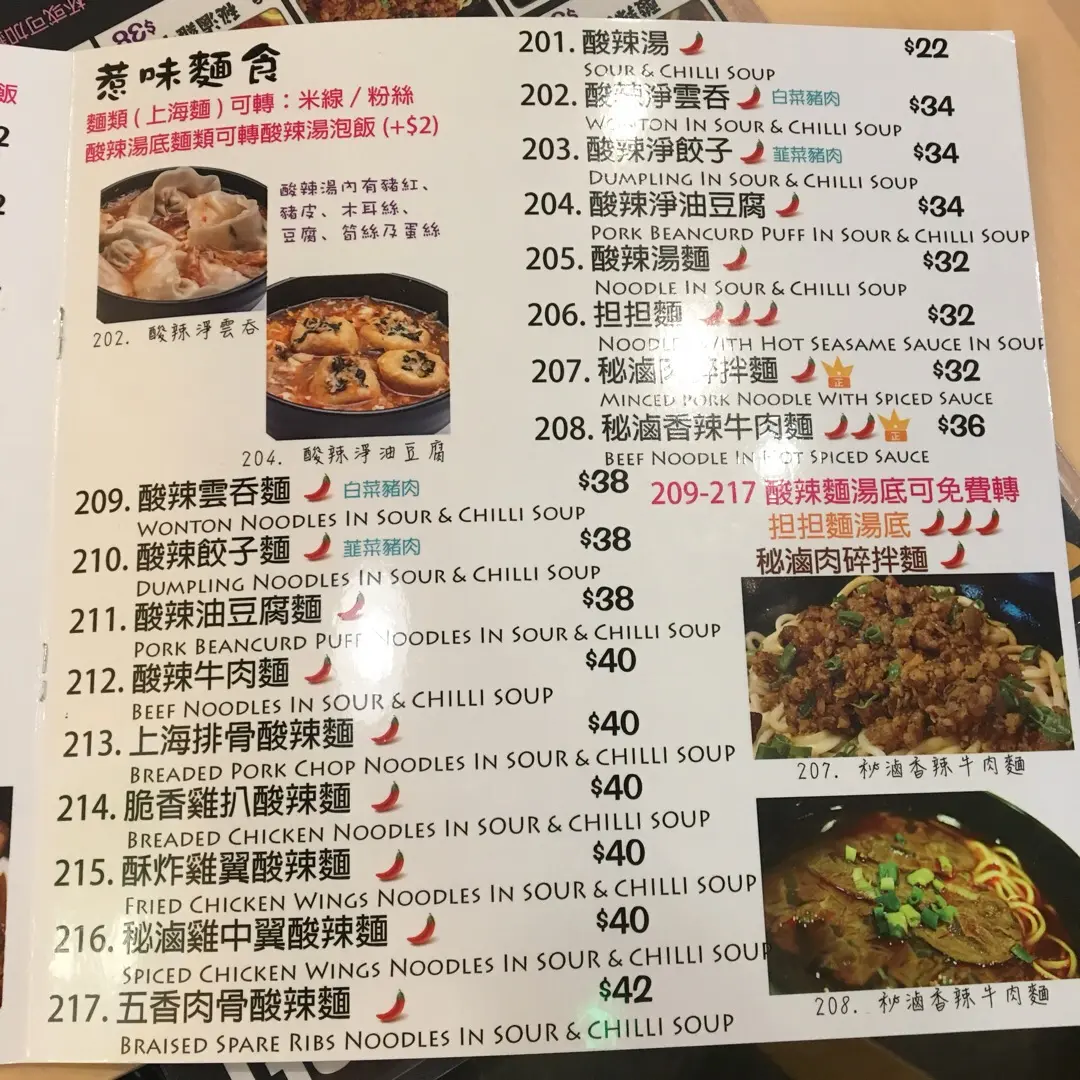 惹味麵食
麵類(上海麵)可轉：米線/粉絲
酸辣湯底麵類可轉酸辣湯泡飯(+$2)
酸辣湯內有豬紅、
豬皮、木耳絲、
豆腐、筍絲及蛋絲
202. 酸辣淨雲吞
204. 酸辣淨油豆腐
201. 酸辣湯 $22
SOUR & CHILLI SOUP
202. 酸辣淨雲吞 白菜豬肉 $34
WONTON IN SOUR & CHILLI SOUP
203. 酸辣淨餃子 韮菜豬肉 $34
DUMPLING IN SOUR & CHILLI SOUP
204. 酸辣淨油豆腐 $34
PORK BEANCURD PUFF IN SOUR & CHILLI SOUP
205. 酸辣湯麵 $32
NOODLE IN SOUR & CHILLI SOUP
206. 担担麵 $32
NOODLE WITH HOT SEASAME SAUCE IN SOUP
207. 秘滷肉碎拌麵 正 $32
MINCED PORK NOODLE WITH SPICED SAUCE
208. 秘滷香辣牛肉麵 正 $36
BEEF NOODLE IN HOT SPICED SAUCE
209. 酸辣雲吞麵 白菜豬肉 $38
WONTON NOODLES IN SOUR & CHILLI SOUP
210. 酸辣餃子麵 韮菜豬肉 $38
DUMPLING NOODLES IN SOUR & CHILLI SOUP
211. 酸辣油豆腐麵 $38
PORK BEANCURD PUFF NOODLES IN SOUR & CHILLI SOUP
212. 酸辣牛肉麵 $40
BEEF NOODLES IN SOUR & CHILLI SOUP
213. 上海排骨酸辣麵 $40
BREADED PORK CHOP NOODLES IN SOUR & CHILLI SOUP
214. 脆香雞扒酸辣麵 $40
BREADED CHICKEN NOODLES IN SOUR & CHILLI SOUP
215. 酥炸雞翼酸辣麵 $40
FRIED CHICKEN WINGS NOODLES IN SOUR & CHILLI SOUP
216. 秘滷雞中翼酸辣麵 $40
SPICED CHICKEN WINGS NOODLES IN SOUR & CHILLI SOUP
217. 五香肉骨酸辣麵 $42
BRAISED SPARE RIBS NOODLES IN SOUR & CHILLI SOUP
209-217 酸辣麵湯底可免費轉
担担麵湯底
秘滷肉碎拌麵
207. 秘滷香辣牛肉麵
208. 秘滷香辣牛肉麵
飯
2
2
$38